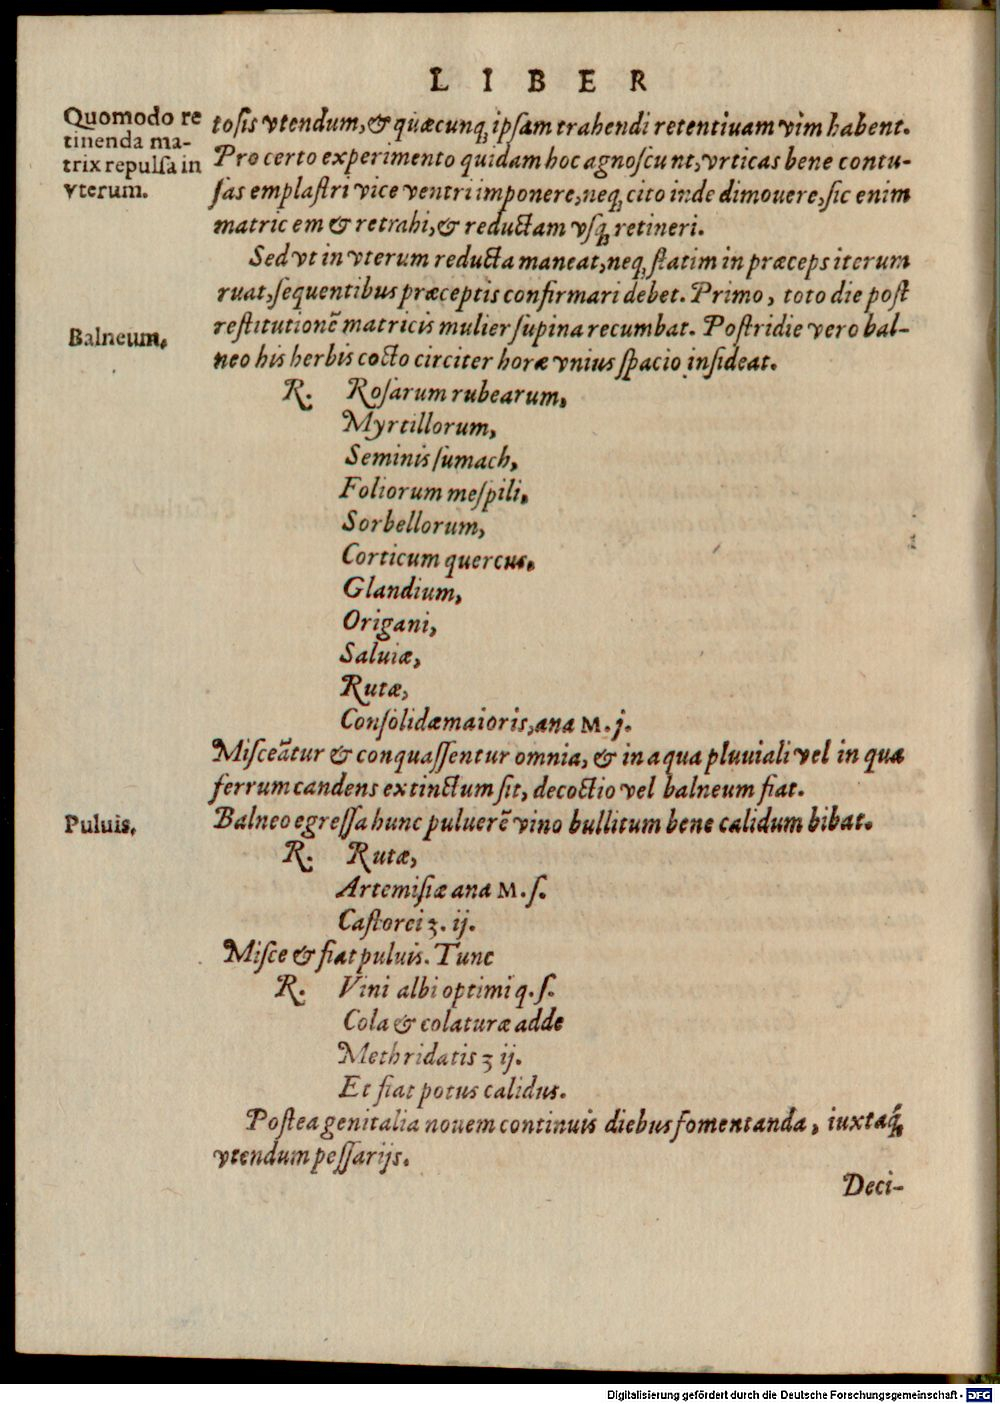 LIBER
Quomodo re
tinenda ma-
trix repulsa in
vterum.
tosis vtendum, & quæcunq; ipsam trahendi retentiuam vim habent.
Pro certo experimento quidam hoc agnoscunt, vrticas bene contu-
sas emplastri vice ventri imponere, neq; cito inde dimouere, sic enim
matricem & retrahi, & reductam vsq; retineri.
Sed vt in vterum reducta maneat, neq; statim in præceps iterum
ruat, sequentibus præceptis confirmari debet. Primo, toto die post
restitutionē matricis mulier supina recumbat. Postridie vero bal-
Balneum.
neo his herbis cocto circiter horæ vnius spacio insideat.
℞. Rosarum rubearum,
Myrtillorum,
Seminis sumach,
Foliorum mespili,
Sorbellorum,
Corticum quercus.
Glandium,
Origani,
Saluiæ,
Rutæ,
Consolidæ maioris, ana M. j.
Misceātur & conquassentur omnia, & in aqua pluuiali vel in qua
ferrum candens extinctum sit, decoctio vel balneum fiat.
Puluis.
Balneo egressa hunc puluerē vino bullitum bene calidum bibat.
℞. Rutæ,
Artemisiæ ana M. s.
Castorei ʒ. ij.
Misce & fiat puluis. Tunc
℞. Vini albi optimi q. s.
Cola & colaturæ adde
Methridatis ʒ ij.
Et fiat potus calidus.
Postea genitalia nouem continuis diebus fomentanda, iuxtaq́;
vtendum pessarijs.
Deci-
Digitalisierung gefördert durch die Deutsche Forschungsgemeinschaft - DFG